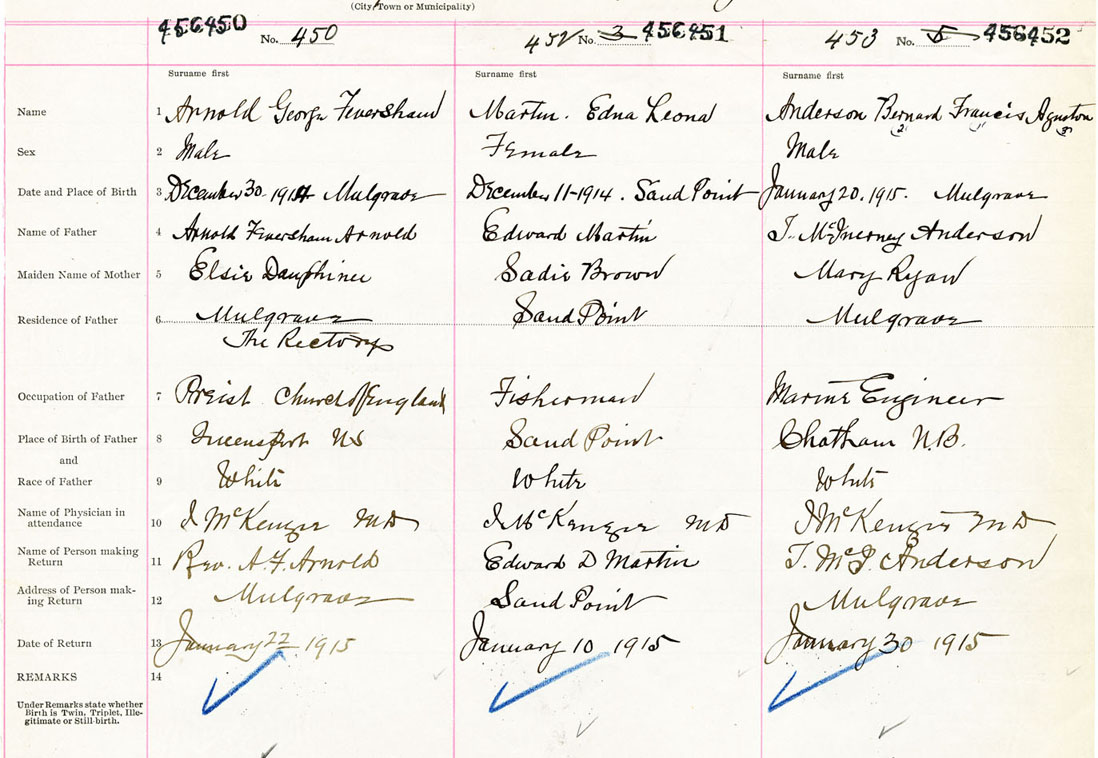 (City, Town or Municipality)
456450 No. 450 452 No. 3 456451 453 No. 5 456452
Surname first Surname first Surname first
Name 1 Arnold George Feversham Martin. Edna Leona Anderson Bernard Francis Aguston
2 " 3
Sex 2 Male Female Male
Date and Place of Birth 3 December 30. 1914 Mulgrave December 11-1914. Sand Point January 20. 1915. Mulgrave
Name of Father 4 Arnold Feversham Arnold Edward Martin T. McInerney Anderson
Maiden Name of Mother 5 Elsie Dauphinee Sadie Brown Mary Ryan
Residence of Father 6 Mulgrave Sand Point Mulgrave
The Rectory
Occupation of Father 7 Preist Church of England Fisherman Marine Engineer
Place of Birth of Father 8 Queensport NS Sand Point Chatham N.B.
and
Race of Father 9 White White White
Name of Physician in
attendance 10 McKenzie MD McKenzie MD McKenzie MD
Name of Person making
Return 11 Rev. A. F. Arnold Edward D Martin T. McI. Anderson
Address of Person mak-
ing Return 12 Mulgrave Sand Point Mulgrave
Date of Return 13 January 22 1915 January 10 1915 January 30 1915
REMARKS 14
Under Remarks state whether
Birth is Twin, Triplet, Ille-
gitimate or Still-birth.